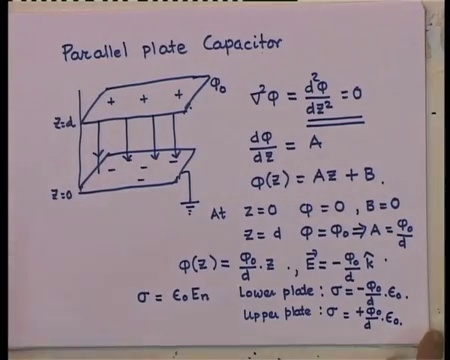 Parallel plate Capacitor
+ + + φ₀
z=d
- - - - -
z=0
∇²φ = d²φ/dz² = 0
dφ/dz = A
φ(z) = Az + B.
At z=0 φ=0, B=0
z=d φ=φ₀ ⇒ A = φ₀/d
φ(z) = φ₀/d · z , E⃗ = -φ₀/d k̂ .
σ = ε₀En Lower plate : σ = -φ₀/d · ε₀.
Upper plate : σ = +φ₀/d · ε₀.